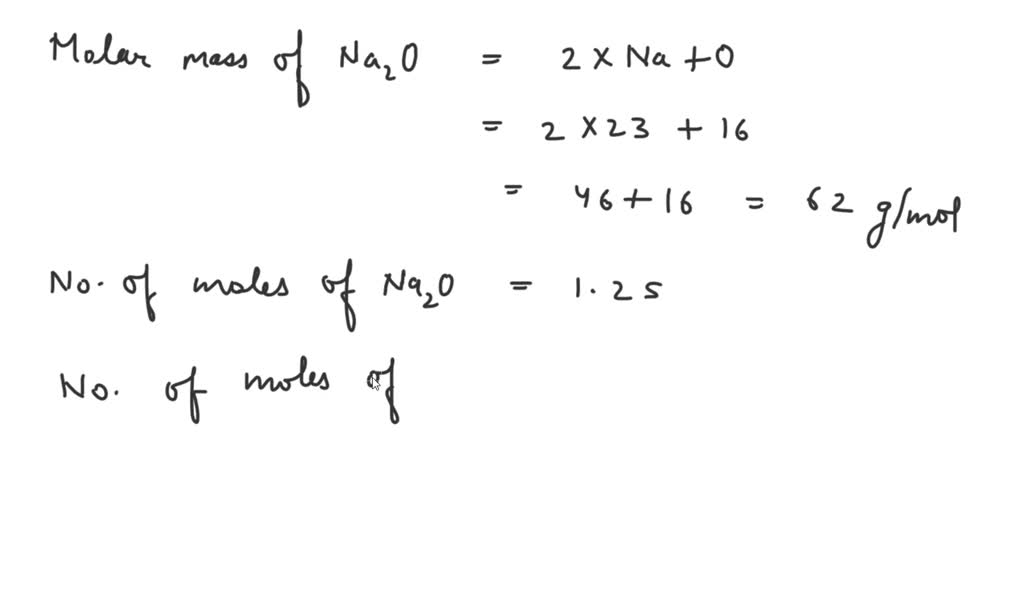 Molar mass of Na₂O = 2 × Na + O
= 2 × 23 + 16
= 46 + 16 = 62 g/mol
No. of moles of Na₂O = 1.25
No. of moles of